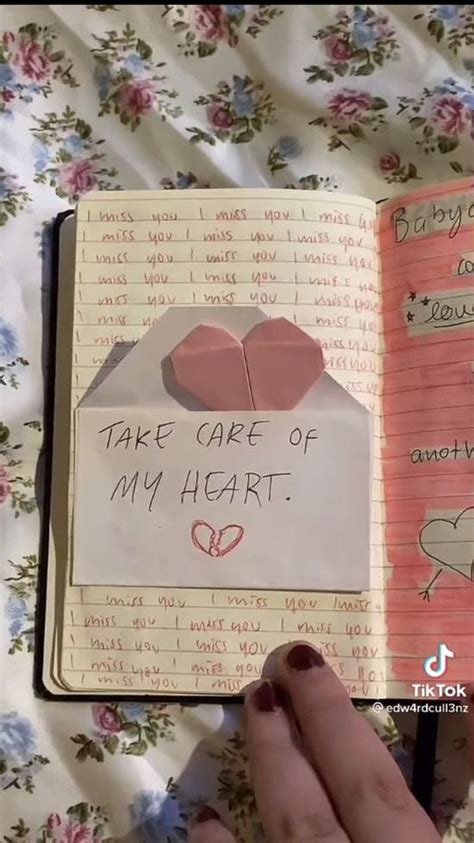 I miss you I miss you I miss you
I miss you I miss you I miss you
I miss you I miss you I miss you
I miss you I miss you I miss you
I miss you I miss you I miss you
I miss I miss you
I miss
TAKE CARE OF
MY HEART.
I miss you I miss you I miss you
I miss you I miss you I miss you
I miss you I miss you I miss you
I miss you I miss you
I miss you I miss
TikTok
@edw4rdcull3nz